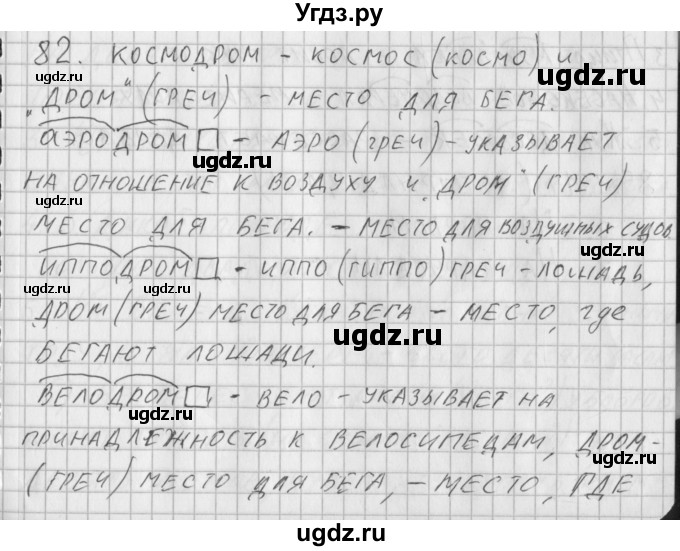 Угдз.ру
82. КОСМОДРОМ - КОСМОС (КОСМО) И
"ДРОМ" (ГРЕЧ) - МЕСТО ДЛЯ БЕГА.
АЭРОДРОМ - АЭРО (ГРЕЧ) - УКАЗЫВАЕТ
НА ОТНОШЕНИЕ К ВОЗДУХУ И "ДРОМ" (ГРЕЧ)
МЕСТО ДЛЯ БЕГА. - МЕСТО ДЛЯ ВОЗДУШНЫХ СУДОВ.
ИППОДРОМ - ИППО (ГИППО) ГРЕЧ - ЛОШАДЬ,
ДРОМ (ГРЕЧ) МЕСТО ДЛЯ БЕГА - МЕСТО, где
БЕГАЮТ ЛОШАДИ.
ВЕЛОДРОМ. - ВЕЛО - УКАЗЫВАЕТ НА
ПРИНАДЛЕЖНОСТЬ К ВЕЛОСИПЕДАМ, ДРОМ-
(ГРЕЧ) МЕСТО ДЛЯ БЕГА, - МЕСТО, ГДЕ
ugdz.ru
ugdz.ru
ugdz.ru
ugdz.ru
ugdz.ru
ugdz.ru
ugdz.ru
ugdz.ru
ugdz.ru
ugdz.ru
ugdz.ru
ugdz.ru
ugdz.ru